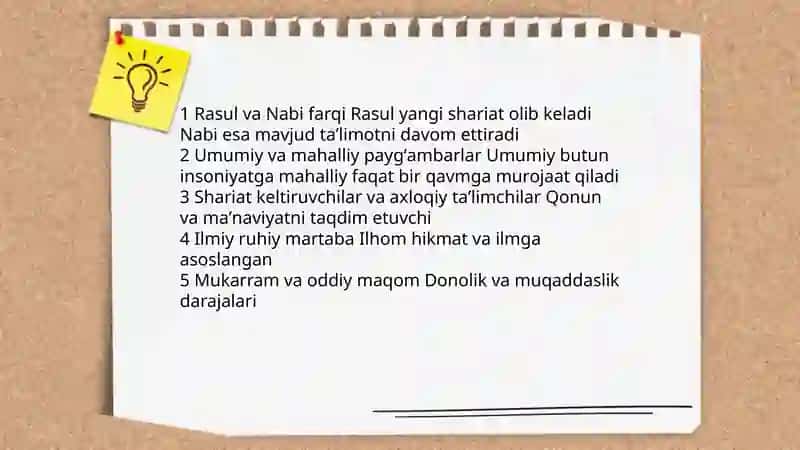 1 Rasul va Nabi farqi Rasul yangi shariat olib keladi
Nabi esa mavjud ta’limotni davom ettiradi
2 Umumiy va mahalliy payg‘ambarlar Umumiy butun
insoniyatga mahalliy faqat bir qavmga murojaat qiladi
3 Shariat keltiruvchilar va axloqiy ta’limchilar Qonun
va ma’naviyatni taqdim etuvchi
4 Ilmiy ruhiy martaba Ilhom hikmat va ilmga
asoslangan
5 Mukarram va oddiy maqom Donolik va muqaddaslik
darajalari